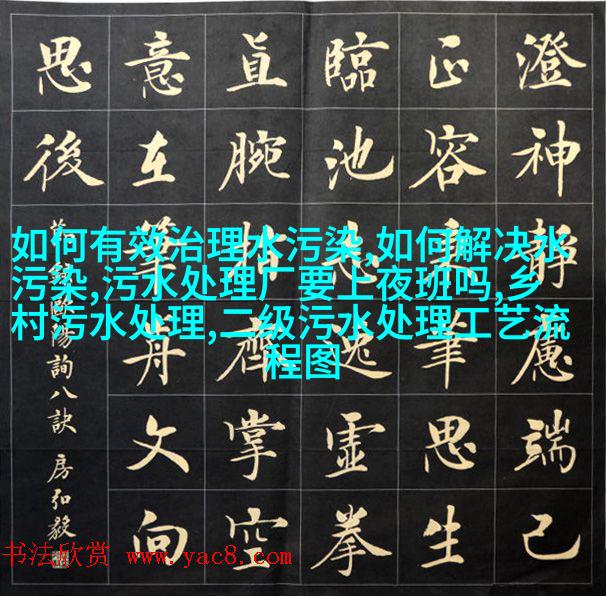 澄神静慮端己
正容秉筆思生
臨池志逸虛拳
直腕指齊掌空
意在筆前文向
思後
錄歐陽詢八訣 房弘毅
如何有效治理水污染,如何解决水
污染,污水处理厂要上夜班吗,乡
村污水处理,二级污水处理工艺流
程图
书法欣赏 www.yac8.com